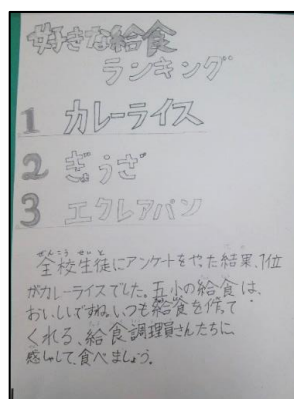 好きな給食
ランキング
1 カレーライス
2 ぎょうざ
3 エクレアパン
ぜんこうせいと
全校生徒にアンケートをやた結果、1位
がカレーライスでした。五小の給食は、
おいしいですね。いつも給食を作って
くれる、給食調理員さんたちに
感しゃして、食べましょう。